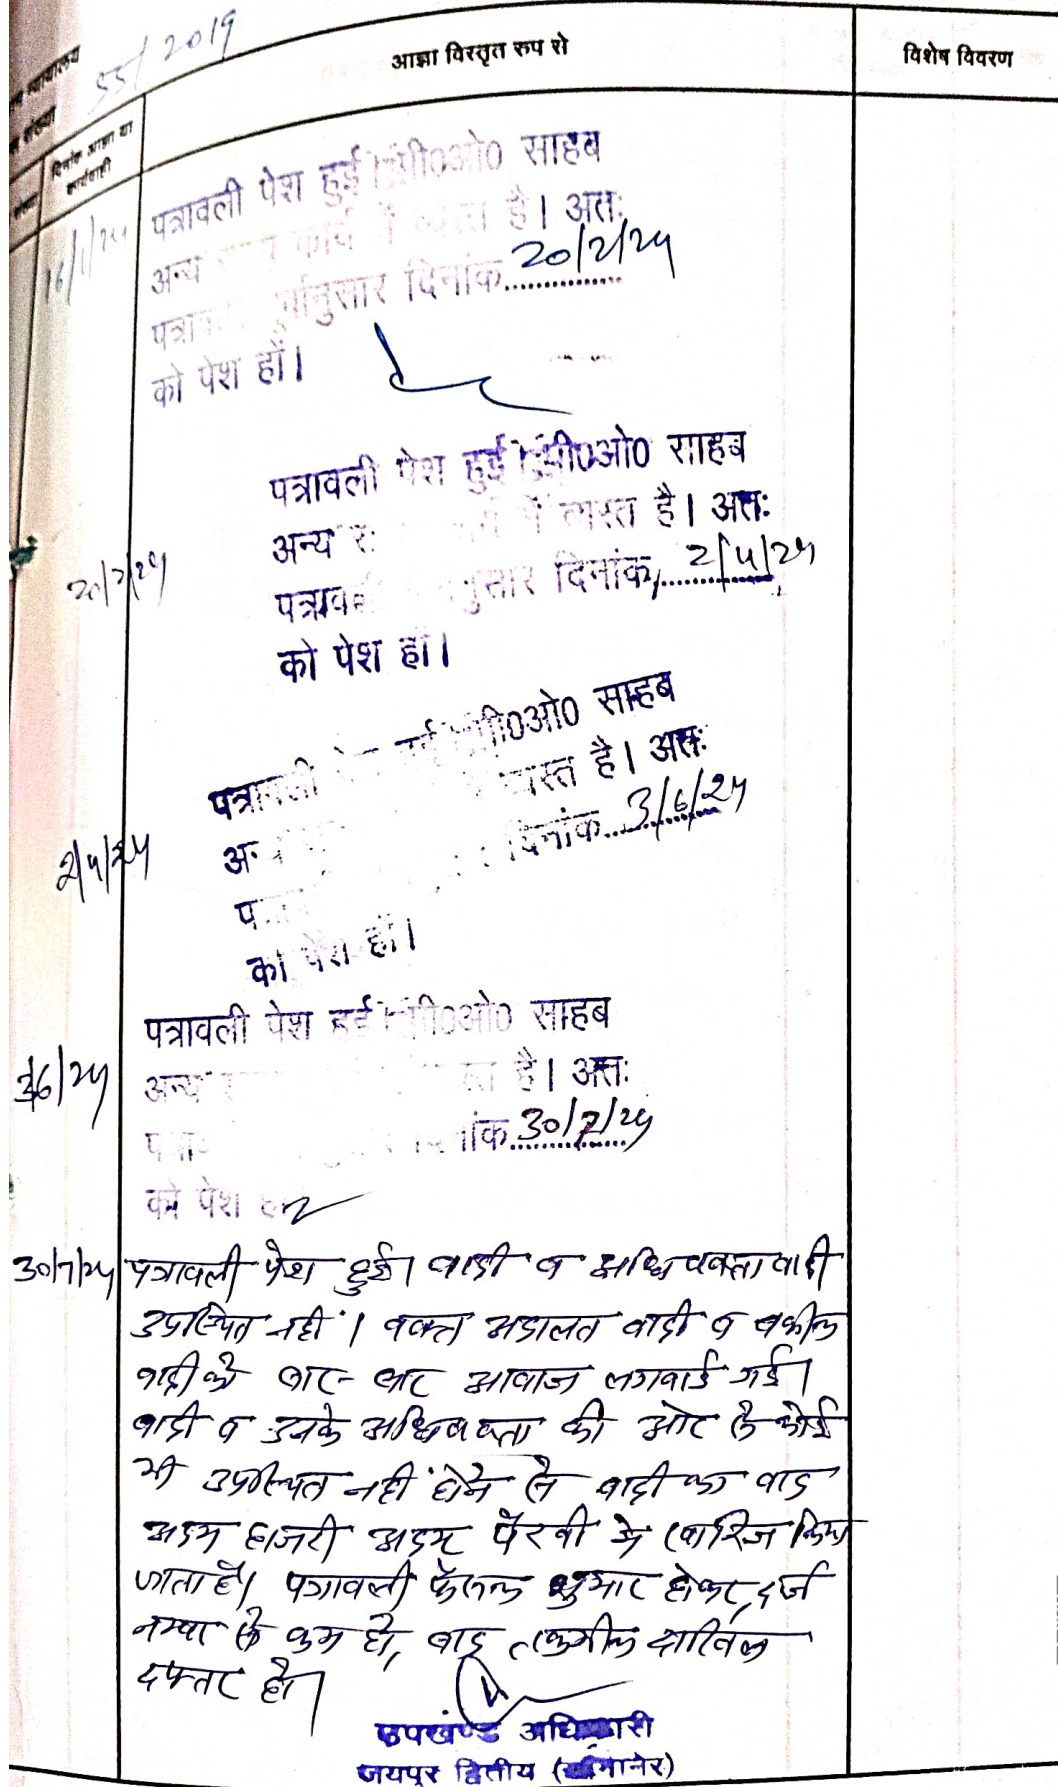 न्यायालय
संख्या
55/2019
आज्ञा विस्तृत रुप से
विशेष विवरण
दिनांक आज्ञा या
कार्यवाही
16/1/24
पत्रावली पेश हुई पी0ओ0 साहब
अन्य कार्य में व्यस्त है। अतः
दिनांक 20/2/24
को पेश हों।
20/2/24
पत्रावली पेश हुई पी0ओ0 साहब
अन्य में व्यस्त है। अतः
दिनांक 2/4/24
को पेश हों।
2/4/24
पत्रावली हुई पी0ओ0 साहब
व्यस्त है। अतः
दिनांक 3/6/24
को पेश हों।
3/6/24
पत्रावली पेश हुई पी0ओ0 साहब
अन्य है। अतः
30/7/24
को पेश
30/7/24
पत्रावली पेश हुई। वादी व अधिवक्ता वादी
उपस्थित नहीं। वक्त अदालत वादी व वकील
वादी को बार-बार आवाज लगवाई गई।
वादी व उनके अधिवक्ता की ओर से कोई
भी उपस्थित नहीं होने से वादी का वाद
अदम हाजरी अदम पैरवी में खारिज किया
जाता है। पत्रावली फैसल शुमार होकर, दर्ज
नम्बर से कम हो, बाद तकमील दाखिल
दफ्तर हो।
उपखण्ड अधिकारी
जयपुर द्वितीय (सांगानेर)